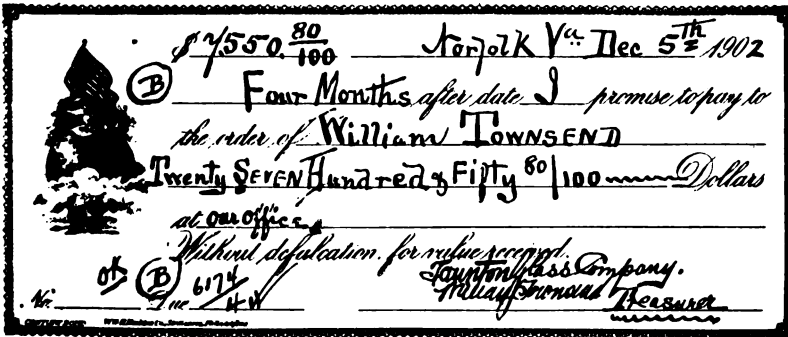 $ 7,550. 80/100 Norfolk Va. Dec 5th 1902
B Four Months after date I promise to pay to
the order of William Townsend
Twenty Seven Hundred & Fifty 80/100 Dollars
at our office,
Without defalcation, for value received.
OK B Taunton Glass Company.
No. Due 6174/44 Treasurer